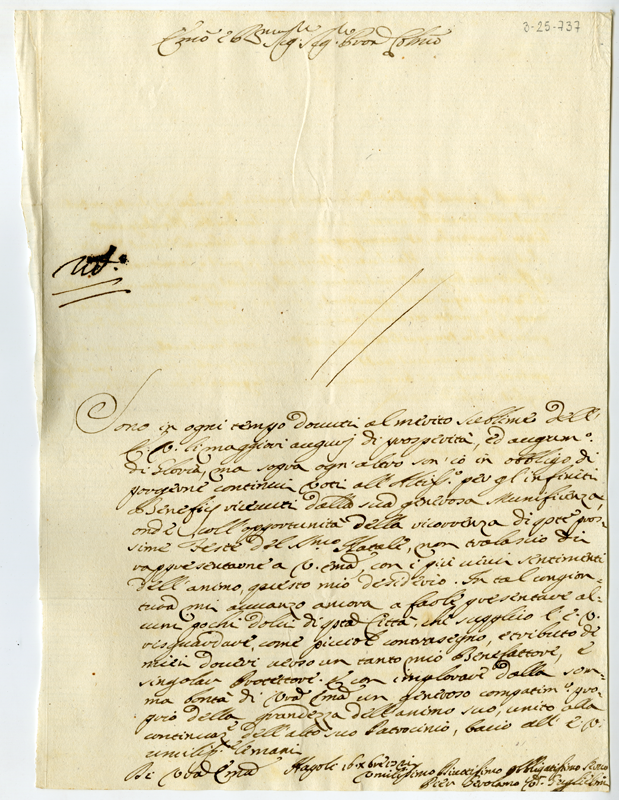 3-25-737
Emo e Rmo Sig.r Sig.r Pron Colmo
Sono in ogni tempo dovuti al merito sublime dell'
E. V. li maggiori augurj di prosperità, ed augum.o
di Gloria, ma sopra ogn'altro son'io in obbligo di
porgerne continui voti all'Altis.o per gl'infiniti
Beneficj ricevuti dalla sua generosa Munificenza,
onde coll'opportunità della ricorrenza di qste pros
sime Feste del Smo Natale, non tralascio di
rappresentarne a V. Emã, con i più vivi sentimenti
dell'animo, questo mio desiderio. In tal congion-
tura mi avvanzo ancora a farle presentare al-
cuni pochi dolci di qsta Città, che supplico l'E. V.
risguardare, come piccol contrasegno, e tributo de
miei doveri verso un tanto mio Benefattore, e
singolar Protettore. E con implorare dalla som-
ma bontà di Vra Emã un generoso compatim.o pro-
prio della grandezza dell'animo suo, unito alla
continuaz.e dell'alto suo Patrocinio, bacio all'E. V.
umilis.te le mani
Di Vra Emã Napoli 16 Xbre
Umilissimo Divotissimo Obbligatissimo Servo
Pier Girolamo